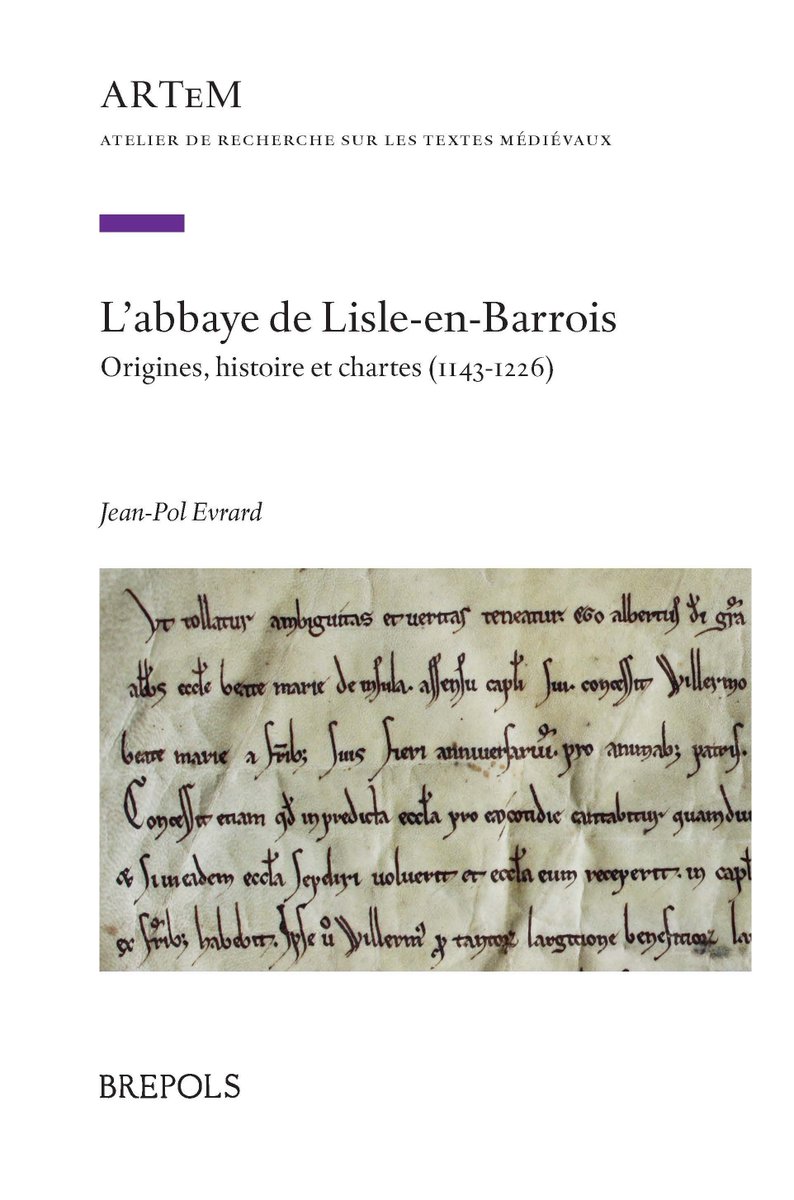 ARTEM
ATELIER DE RECHERCHE SUR LES TEXTES MÉDIÉVAUX
L'abbaye de Lisle-en-Barrois
Origines, histoire et chartes (1143-1226)
Jean-Pol Evrard
Vt tollatur ambiguitas et ueritas teneatur. ego albertus di gra
abbs eccle beate marie de insula. assensu capli sui. concessit Willermo
beate marie a frib; suis fieri anniuersariu. pro animab; patris.
Concessit etiam qd in predicta eccla pro eo cantabitur quamdiu
& si in eadem eccla sepeliri uoluerit et eccla eum receperit. in capl
ex frib; habebit. Ipse u Willerm p tantor largitione beneficior la
BREPOLS